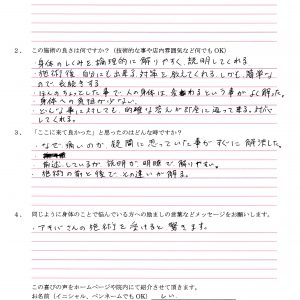 2. この施術の良さは何ですか？（技術的な事や店内雰囲気など何でもOK）
・身体のしくみを論理的に解りやすく、説明してくれる
・施術後、自分にも出来る対策を教えてくれる。しかも簡単な
ので長続きする。
・ほんのちょっとした事で、人の身体は変わるという事がよく解った。
・身体への負担が少ない。
・どんな事に対しても、的確な答えが即座に返って来る。対応
してくれる。
3. 「ここに来て良かった」と思ったのはどんな時ですか？
・なぜ痛いのか、疑問に思っていた事がすぐに解消した。
・前述しているが説明が明瞭で解りやすい。
・施術の前と後で、その違いが解る。
4. 同じように身体のことで悩んでいる方への励ましの言葉などメッセージをお願いします。
・アキバさんの施術を受けると驚きます。
この喜びの声をホームページや院内にて紹介させて頂きます。
お名前（イニシャル、ペンネームでもOK）